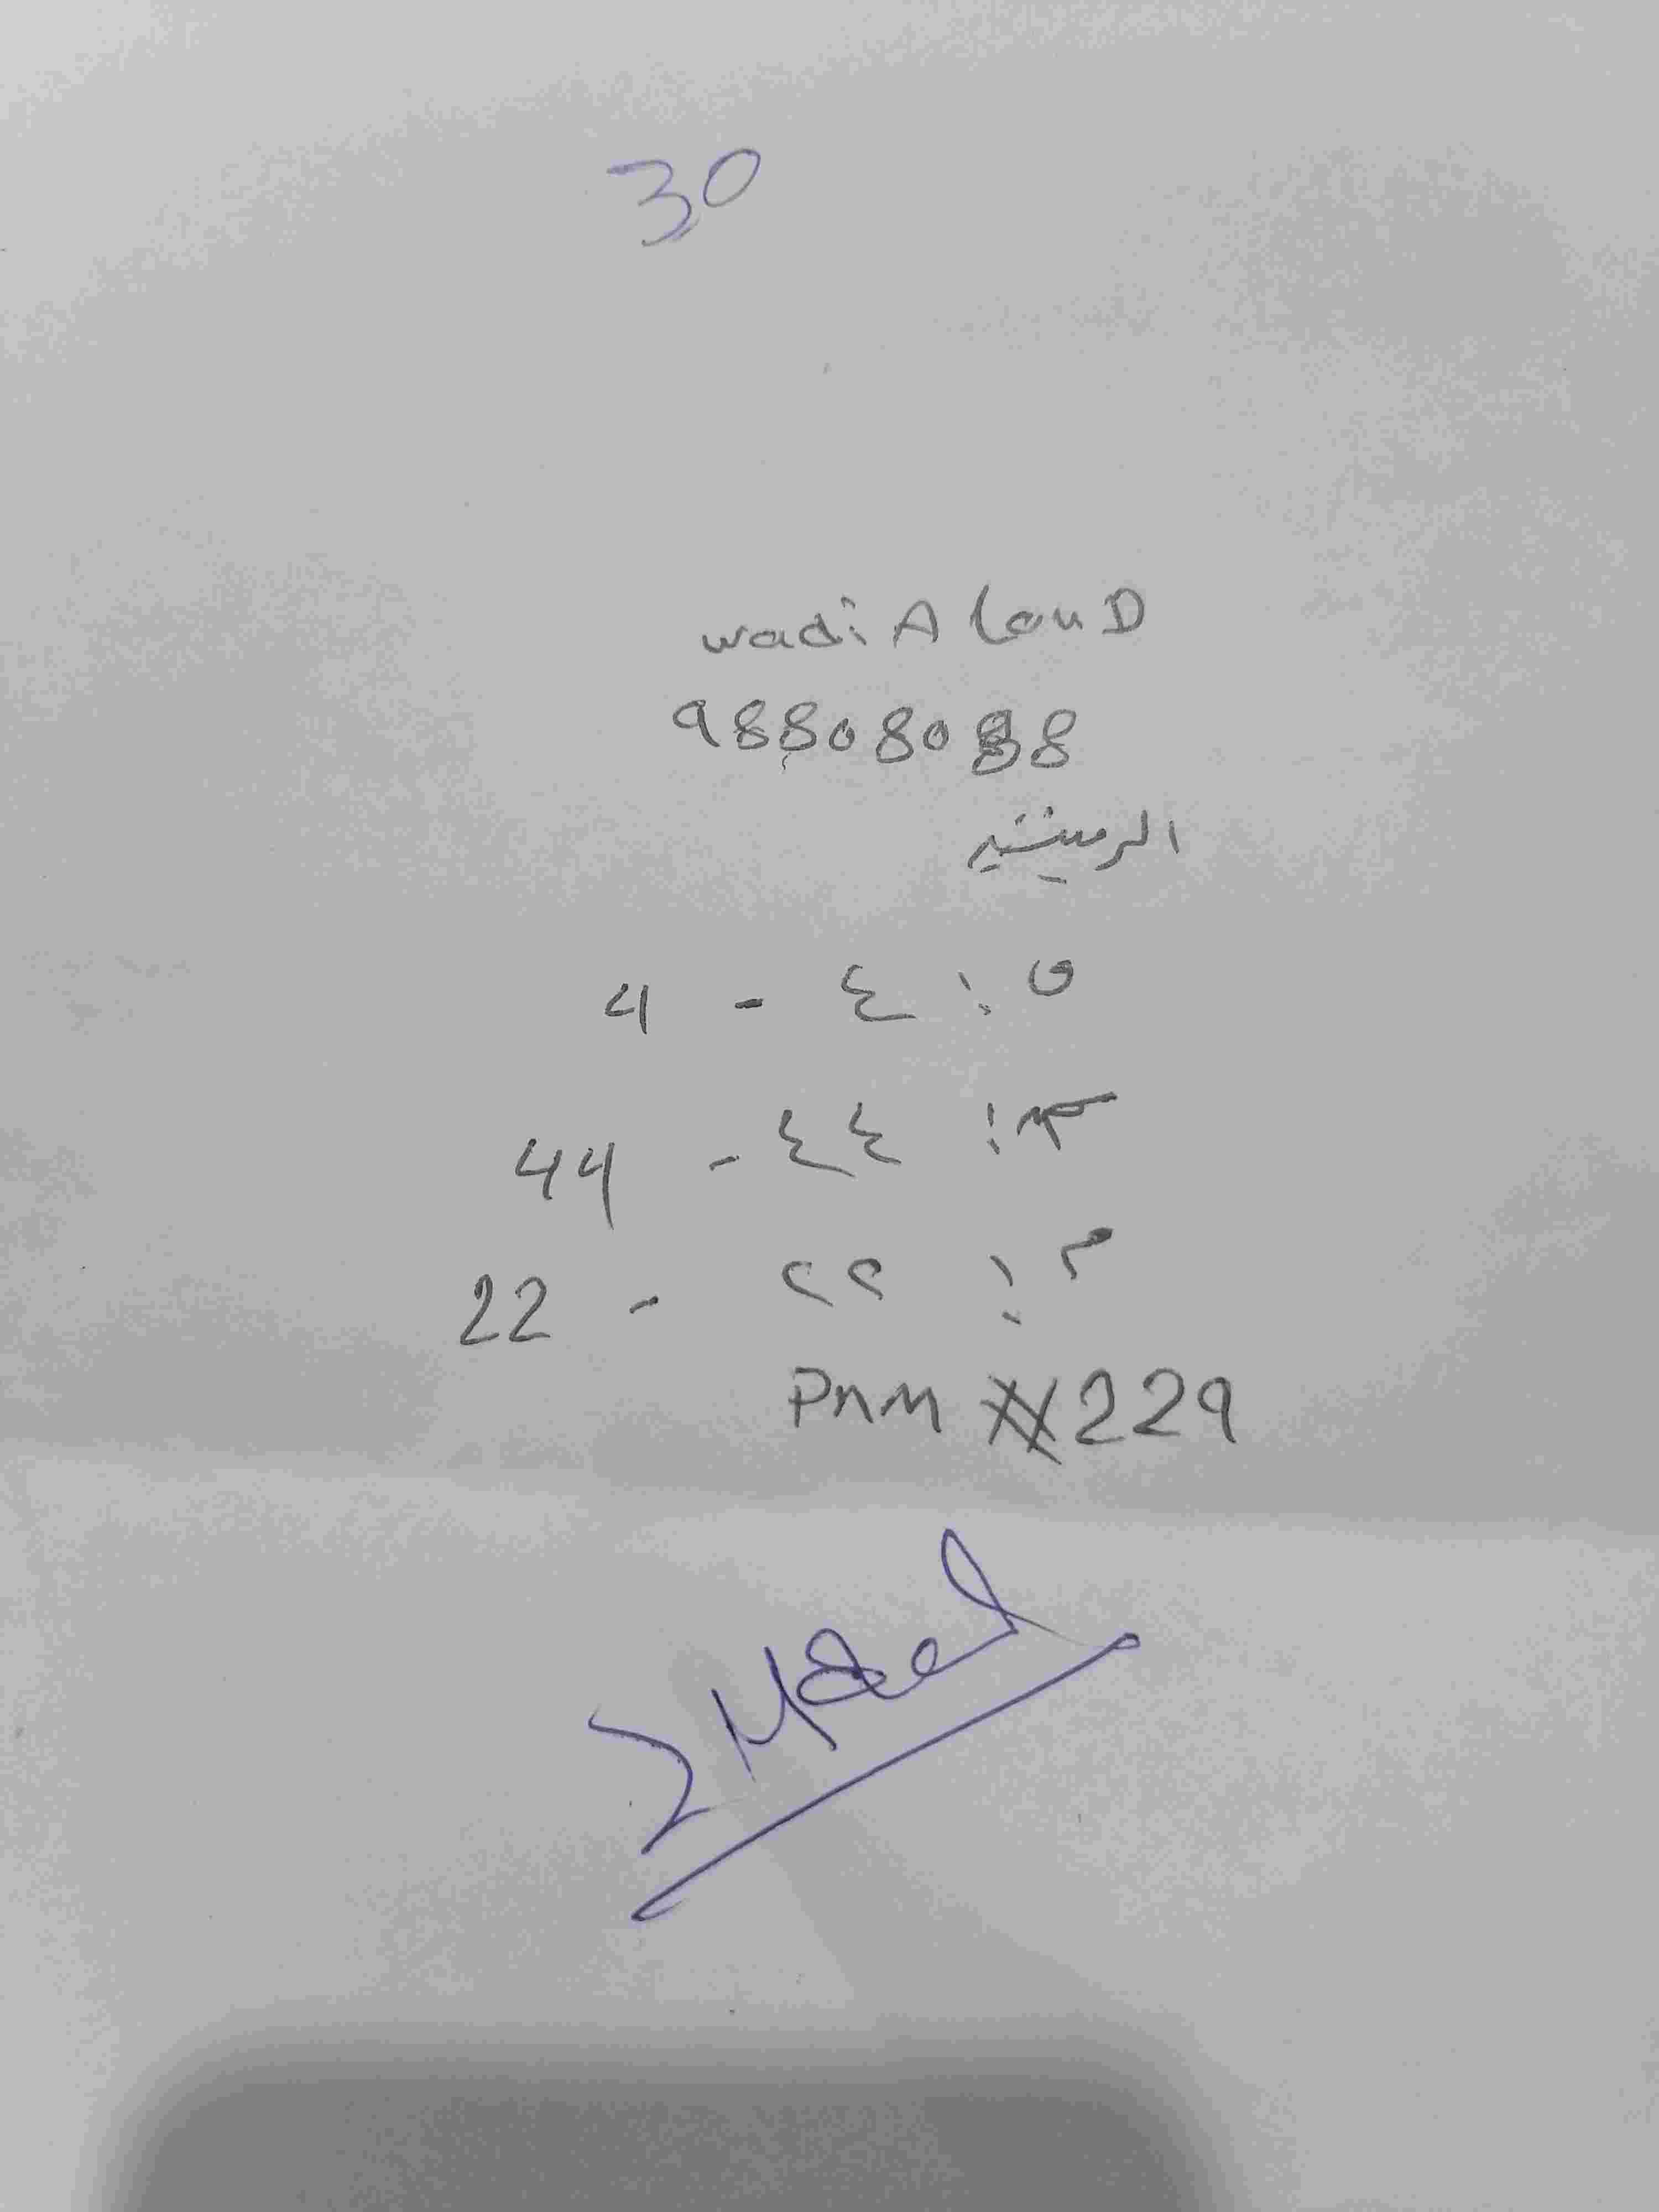 30
wadi A lauD
98808088
الرميثيه
ق: ٤ - 4
ش: ٤٤ - 44
م: ٢٢ - 22
PAM #229